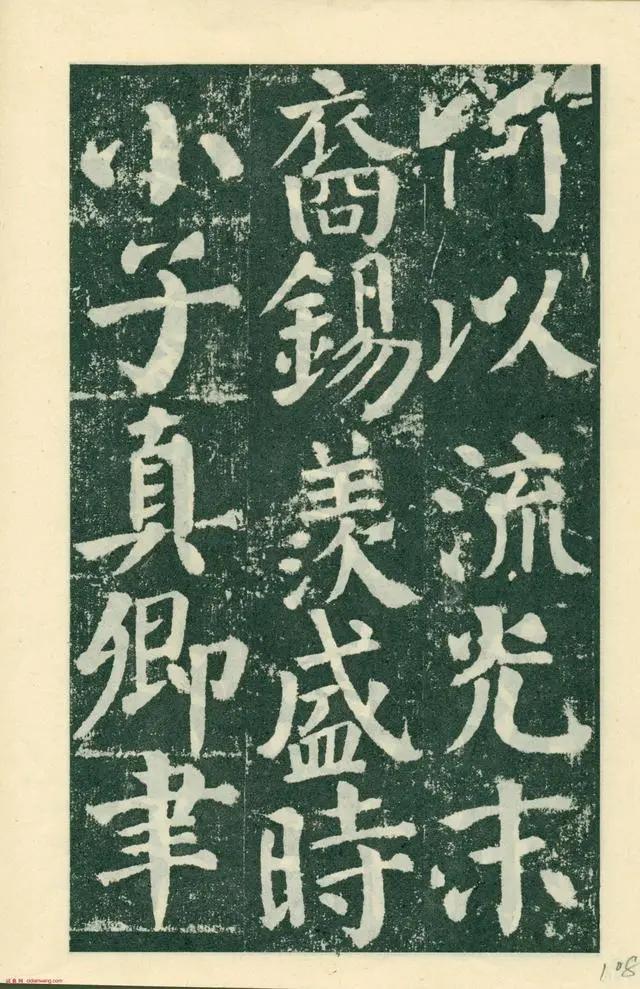 所以流光末
裔錫羨盛時
小子真卿聿
108